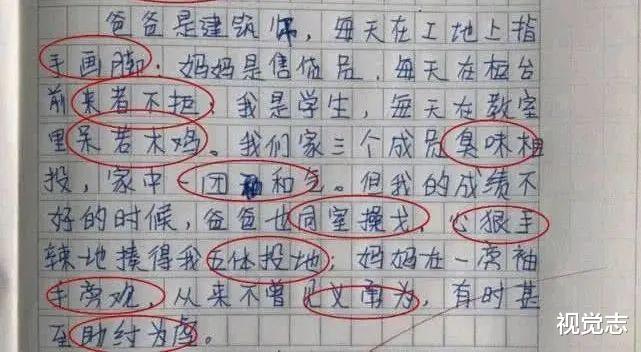 爸爸是建筑师，每天在工地上指
手画脚；妈妈是售货员，每天在柜台
前来者不拒，我是学生，每天在教室
里呆若木鸡。我们家三个成员臭味相
投，家中一团和气。但我的成绩不
好的时候，爸爸也同室操戈，心狠手
辣地揍得我五体投地；妈妈在一旁袖
手旁观，从来不曾见义勇为，有时甚
至助纣为虐。
视觉志